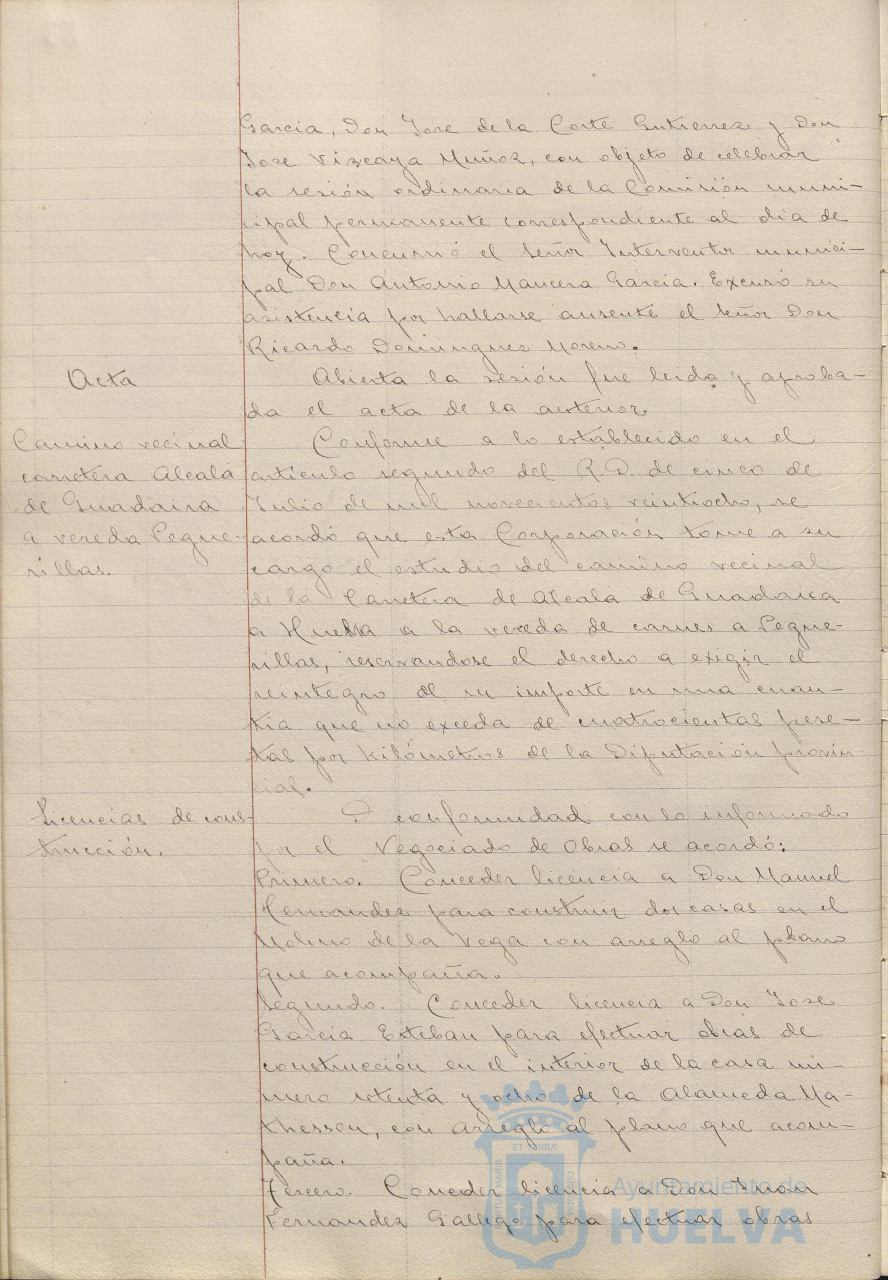 Garcia, Don Jose de la Corte Gutierrez y Don
Jose Vizcaya Muñoz, con objeto de celebrar
la sesión ordinaria de la Comisión muni-
cipal permanente correspondiente al dia de
hoy. Concurrió el Señor Interventor munici-
pal Don Antonio Mancera Garcia. Excusó su
asistencia por hallarse ausente el Señor Don
Ricardo Dominguez Moreno.
Acta
Abierta la sesión fue leida y aproba-
da el acta de la anterior.
Camino vecinal
carretera Alcalá
de Guadaira
a vereda Pegue-
rillas.
Conforme a lo establecido en el
articulo segundo del R.D. de cinco de
Julio de mil novecientos veintiocho, se
acordó que esta Corporación tome a su
cargo el estudio del camino vecinal
de la Carretera de Alcala de Guadaira
a Huelva a la vereda de carnes a Pegue-
rillas, reservandose el derecho a exigir el
reintegro de su importe en una cuan-
tia que no exceda de cuatrocientas pese-
tas por kilómetros de la Diputación provin
cial.
Licencias de cons-
trucción.
D conformidad con lo informado
por el Negociado de Obras se acordó:
Primero. Conceder licencia a Don Manuel
Hernandez para construir dos casas en el
Molino de la Vega con arreglo al plano
que acompaña.
Segundo. Conceder licencia a Don Jose
Garcia Esteban para efectuar obras de
construcción en el interior de la casa nú-
mero setenta y ocho de la Alameda Ma-
thesson, con arreglo al plano que acom-
paña.
Tercero. Conceder licencia a Don Juan
Fernandez Gallego para efectuar obras
Ayuntamiento de
HUELVA